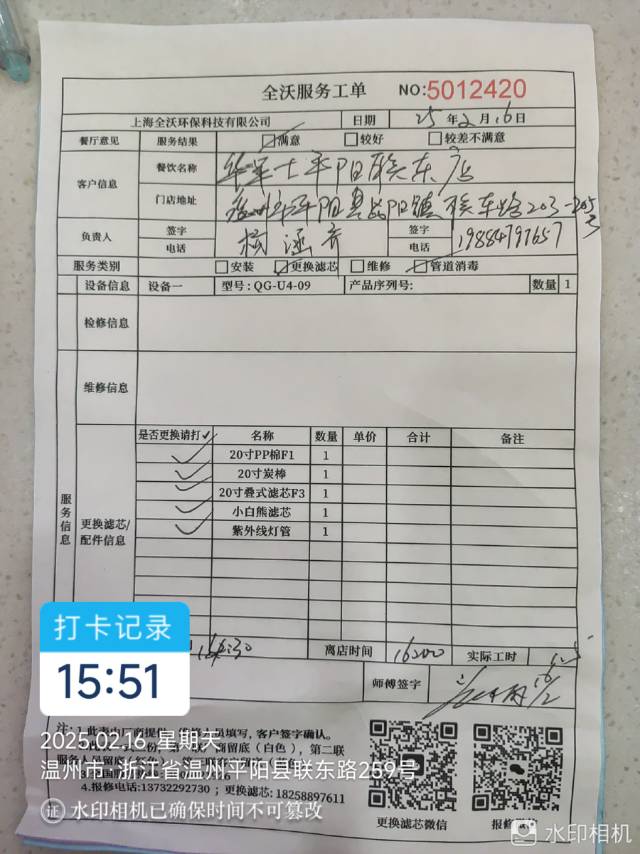 全沃服务工单 NO:5012420
上海全沃环保科技有限公司 日期 25年2月16日
餐厅意见 服务结果 满意 较好 较差不满意
客户信息 餐饮名称 华莱士平阳联东店
门店地址 温州市平阳县昆阳镇联东路203-205号
负责人 签字 签字
电话 电话 19884797657
服务类别 安装 更换滤芯 维修 管道消毒
设备信息 设备一 型号:QG-U4-09 产品序列号: 数量 1
检修信息
维修信息
服务信息
更换滤芯/配件信息
是否更换请打✓ 名称 数量 单价 合计 备注
✓ 20寸PP棉F1 1
✓ 20寸炭棒 1
✓ 20寸叠式滤芯F3 1
✓ 小白熊滤芯 1
✓ 紫外线灯管 1
离店时间 16:00 实际工时 1.5
师傅签字
打卡记录
15:51
填写,客户签字确认。
商留底(白色),第二联
2025.02.16 星期天
温州市·浙江省温州平阳县联东路259号
4.报修电话:13732292730;更换滤芯:18258897611
更换滤芯微信 报修
证 水印相机已确保时间不可篡改
水印相机